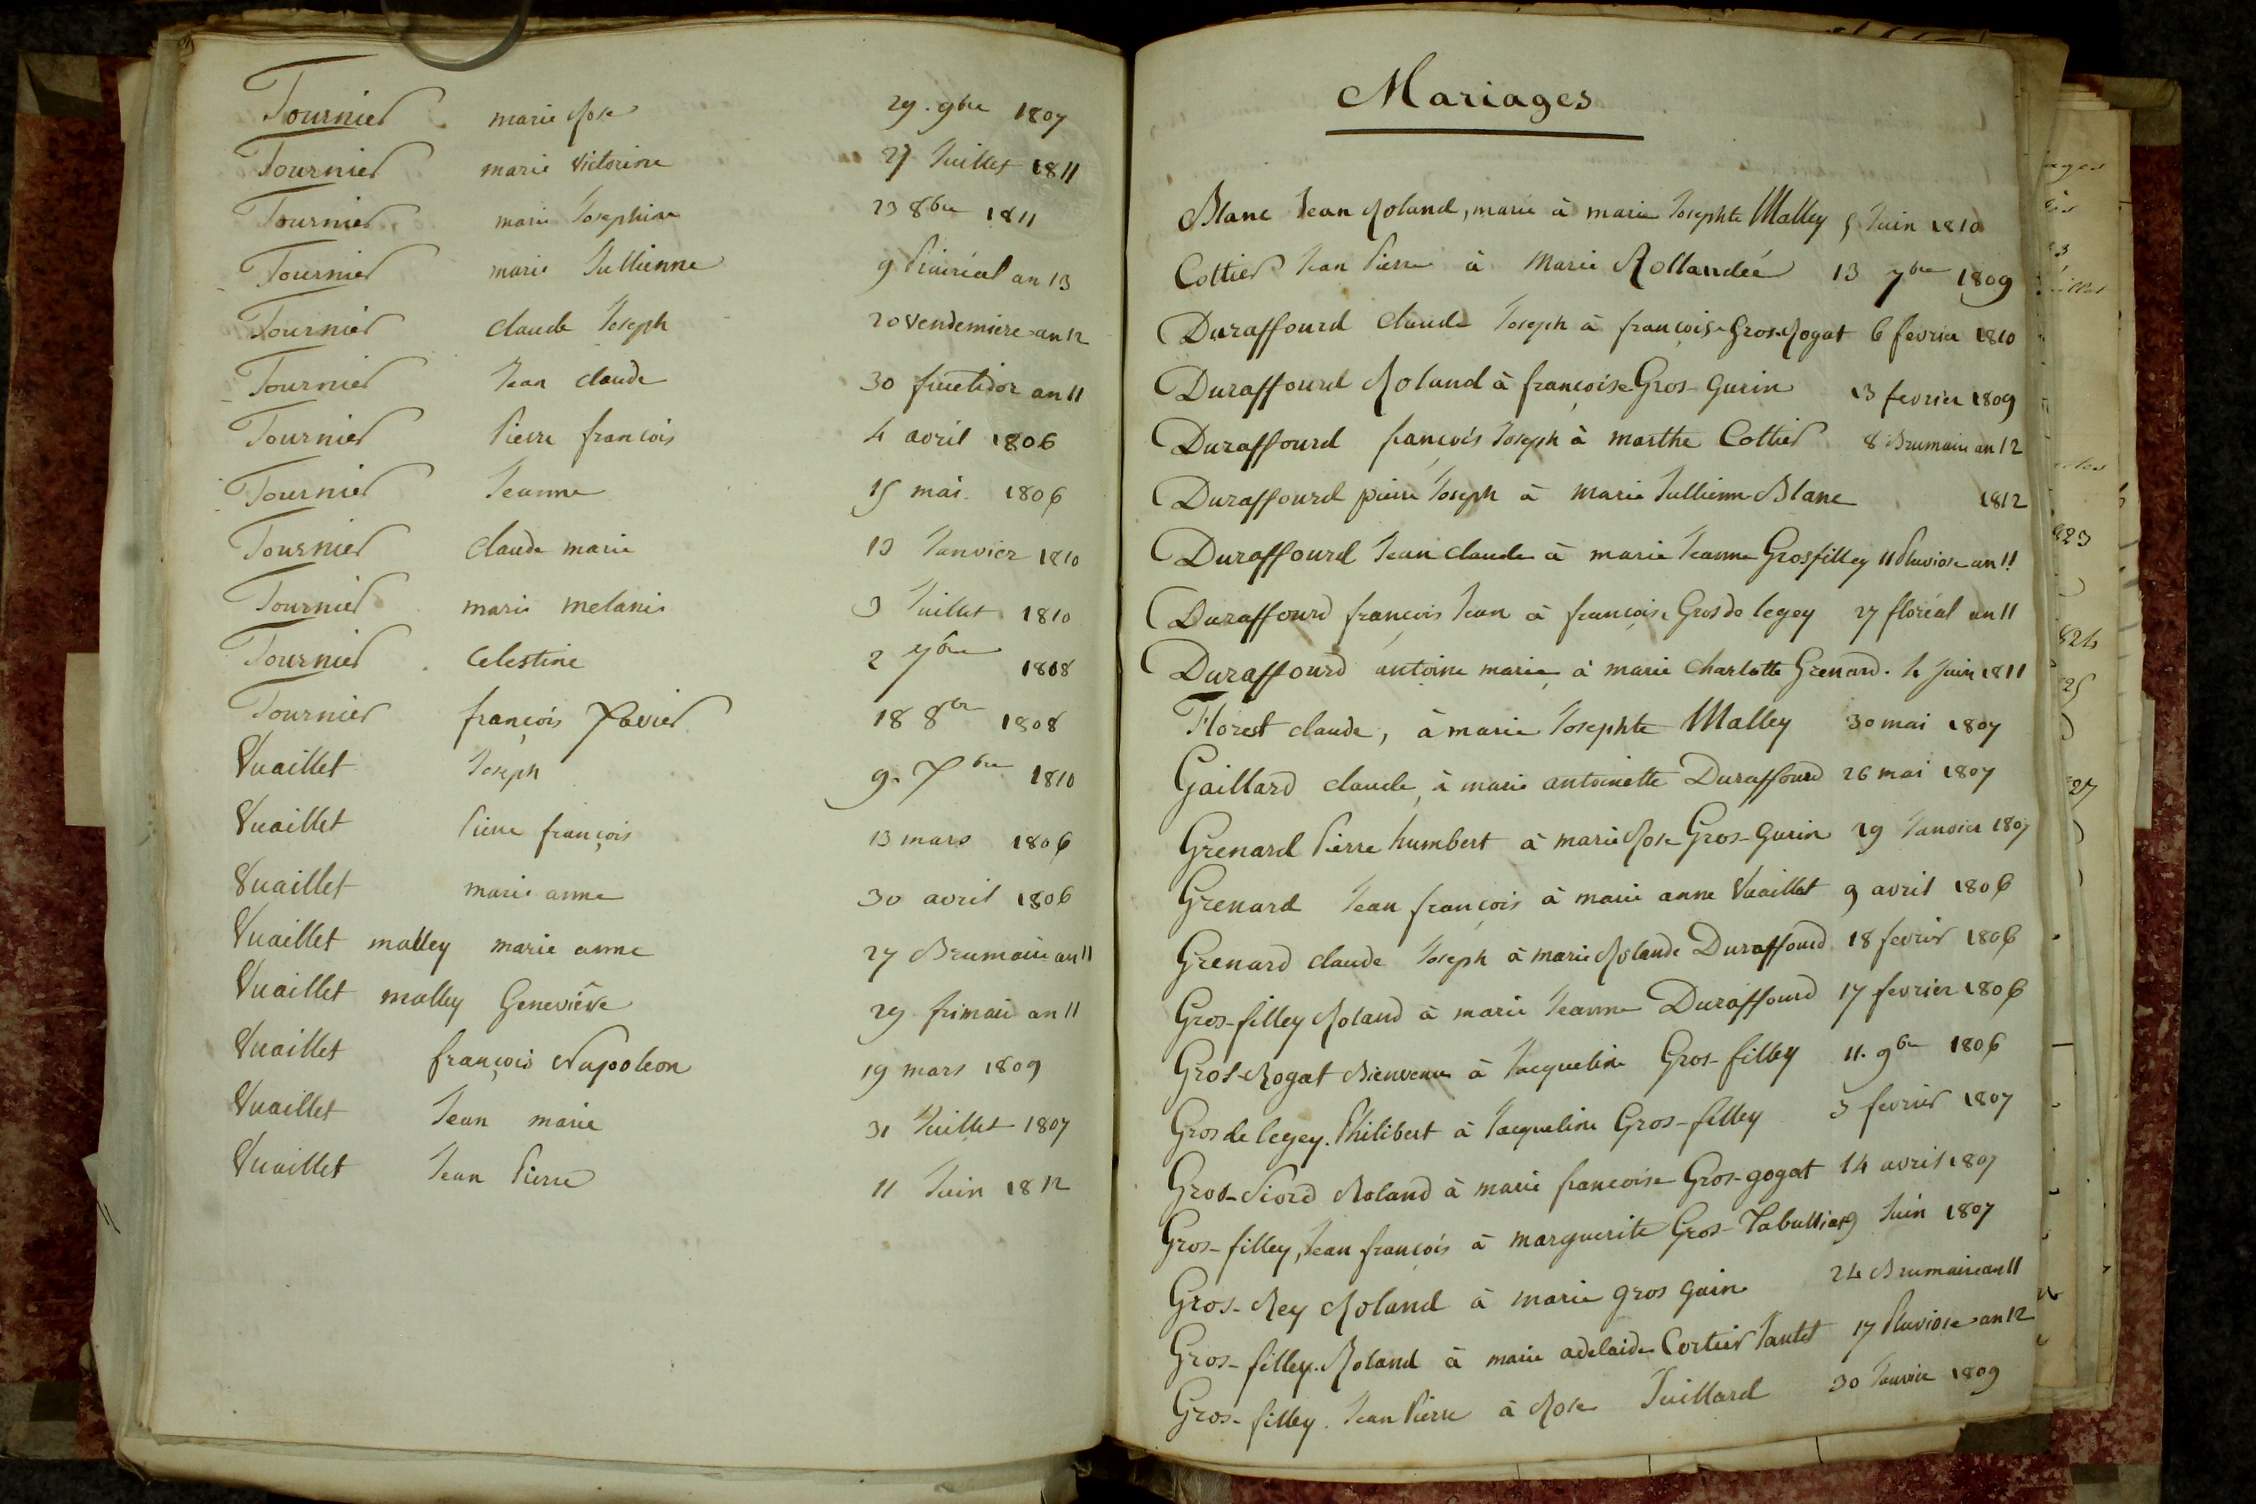 Tournier marie Rose 29. 9bre 1807
Tournier marie Victorine 27 Juillet 1811
Tournier marie Josephine 23 8bre 1811
Tournier marie Jullienne 9 Prairéal an 13
Tournier claude Joseph 20 Vendemiere an 12
Tournier Jean claude 30 fructidor an 11
Tournier Pierre francois 4 avril 1806
Tournier Jeanne 15 mai 1806
Tournier claude marie 13 Janvier 1810
Tournier marie melanie 3 Juillet 1810
Tournier Celestine 2 7bre 1808
Tournier françois Xavier 18 8bre 1808
Vuaillet Joseph 9. 7bre 1810
Vuaillet Pierre françois 13 mars 1806
Vuaillet marie anne 30 avril 1806
Vuaillet malley marie anne 27 Brumaire an 11
Vuaillet malley Geneviève 29 frimaire an 11
Vuaillet françois Napoleon 19 mars 1809
Vuaillet Jean marie 31 Juillet 1807
Vuaillet Jean Pierre 11 Juin 1812
Mariages
Blanc Jean Roland, marie à marie Josephte Malley 5 Juin 1810
Cottier Jean Pierre à Marie Rollandée 13 7bre 1809
Duraffourd Claude Joseph à françoise Gros-Rogat 6 fevrier 1810
Duraffourd Roland à françoise Gros-Gurin 13 fevrier 1809
Duraffourd françois Joseph à marthe Cottier 8 Brumaire an 12
Duraffourd pierre Joseph à Marie Jullienne Blanc 1812
Duraffourd Jean claude à marie Jeanne Grosfilley 11 Pluviose an 11
Duraffourd françois Jean à françoise Gros de legey 27 floréal an 11
Duraffourd antoine marie à marie Charlotte Grenard. 4 Juin 1811
Florest claude, à marie Josephte Malley 30 mai 1807
Gaillard claude, à marie antoinette Duraffourd 26 mai 1807
Grenard Pierre humbert à marie Rose Gros-Gurin 29 Janvier 1807
Grenard Jean françois à marie anne Vuaillat 9 avril 1806
Grenard claude Joseph à marie Rolande Duraffourd 18 fevrier 1806
Gros-filley Roland à marie Jeanne Duraffourd 17 fevrier 1806
Gros-Rogat Bienvenu à Jacqueline Gros-filley 11. 9bre 1806
Gros de legey. Philibert à Jacqueline Gros-filley 3 fevrier 1807
Gros- Roland à marie francoise Gros-gogat 14 avril 1807
Gros-filley, Jean françois à marguerite Gros- Juin 1807
Gros-Rey Roland à marie gros gain 24 Brumaire an 11
Gros-filley. Roland à marie adelaide Cortier 17 Pluviose an 12
Gros-filley. Jean Pierre à Rose Juillard 30 Janvier 1809